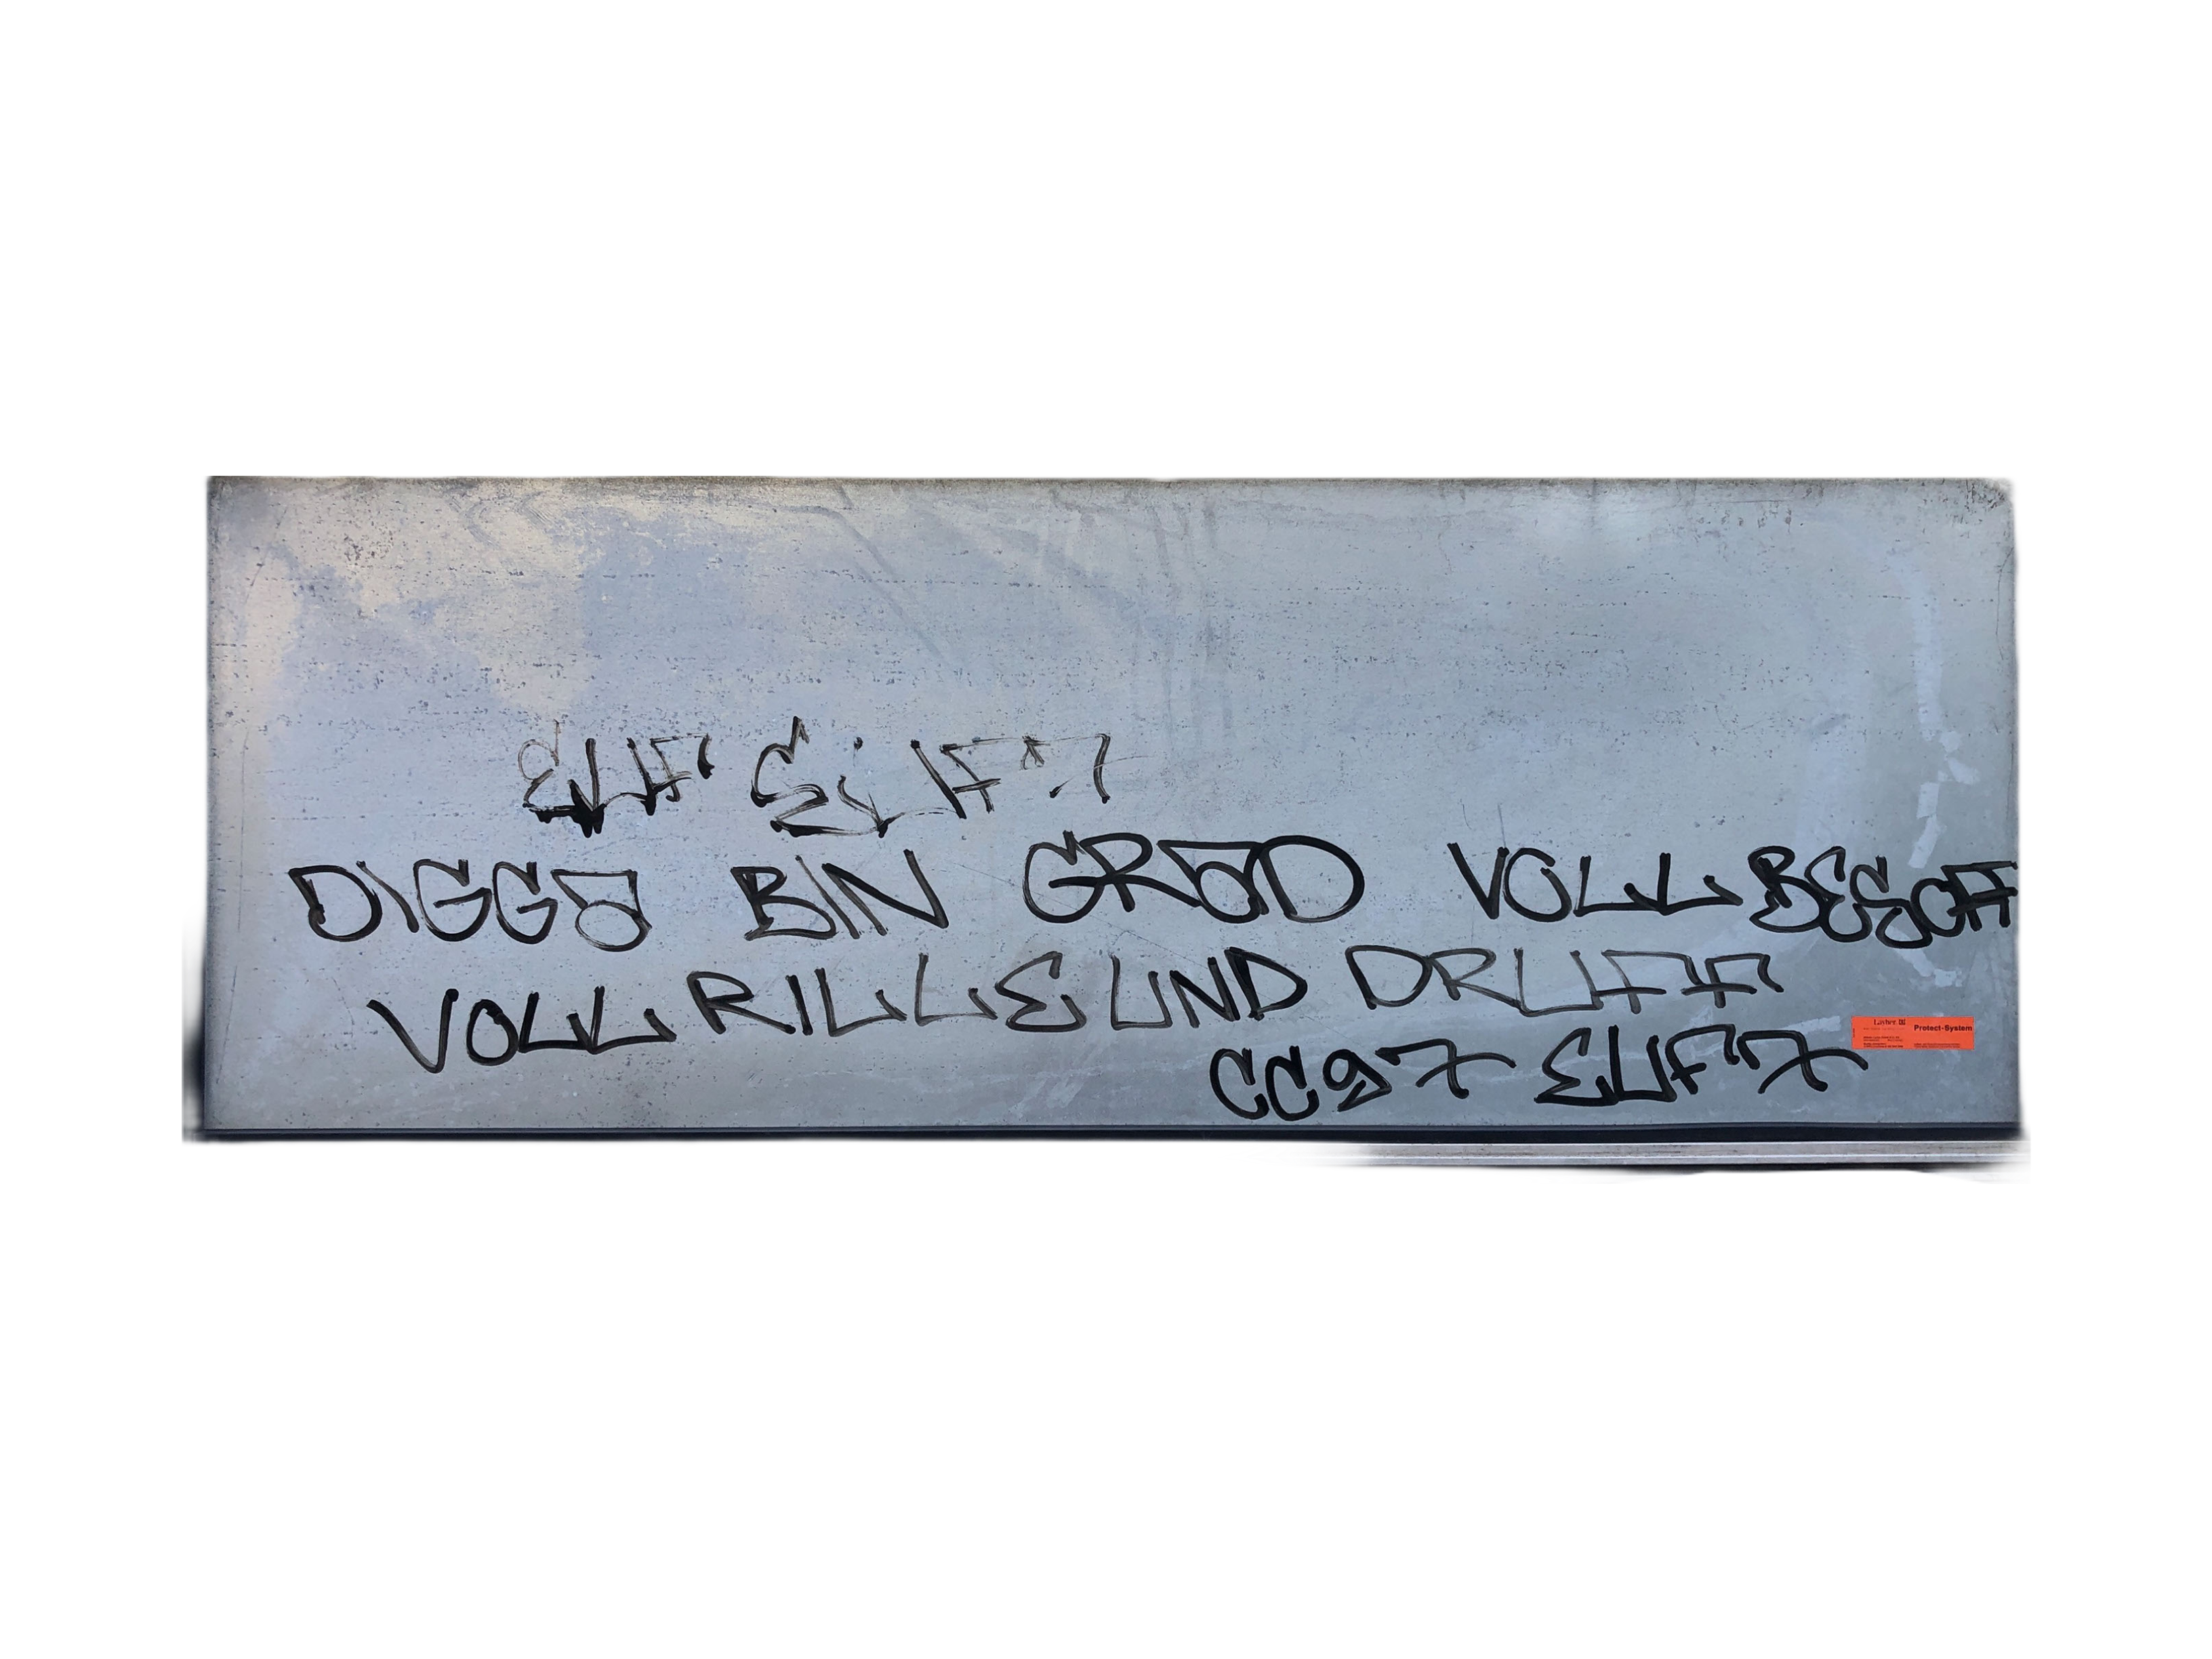 ELF ELF 7
DIGGA BIN GRAD VOLL BESOFF
VOLL RILLE UND DRUFF
CC97 ELF7
Layher
Protect-System